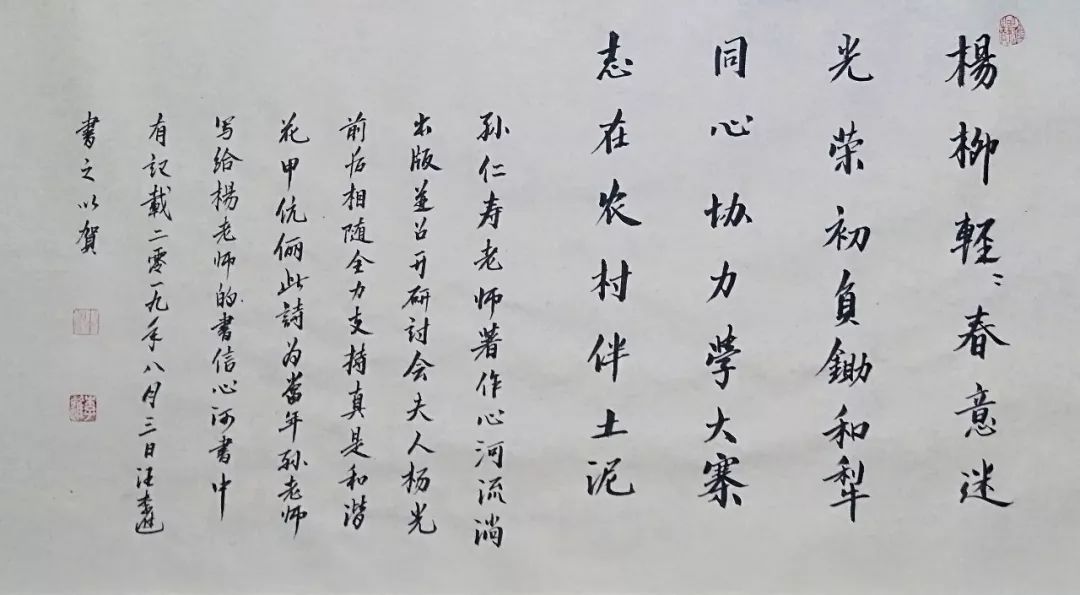 楊柳輕〻春意迷
光荣初負鋤和犁
同心协力學大寨
志在农村伴土泥
孙仁寿老师著作心河流淌
出版並召开研討会夫人杨光
前后相随全力支持真是和谐
花甲伉俪此詩为當年孙老师
写给楊老师的書信心河書中
有記載二零一九年八月三日汪
書之以贺